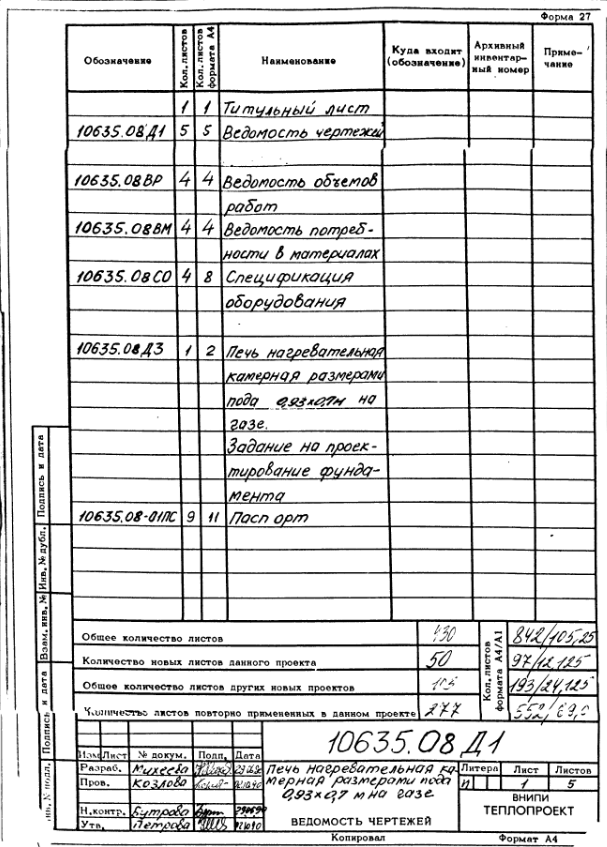 Форма 27
Обозначение Кол. листов Кол. листов формата А4 Наименование Куда входит (обозначение) Архивный инвентарный номер Примечание
1 1 Титульный лист
10635.08Д1 5 5 Ведомость чертежей
10635.08ВР 4 4 Ведомость объемов
работ
10635.08ВМ 4 4 Ведомость потреб-
ности в материалах
10635.08СО 4 8 Спецификация
оборудования
10635.08Д3 1 2 Печь нагревательная
камерная размерами
пода 0,93х0,7м на
газе.
Задание на проек-
тирование фунда-
мента
10635.08-01ПС 9 11 Паспорт
Подпись и дата
Инв. № дубл.
Взам. инв. №
Подпись и дата
Инв. № подл.
Общее количество листов 430
Количество новых листов данного проекта 50
Общее количество листов других новых проектов
Количество листов повторно примененных в данном проекте 277
Кол. листов формата А4/А1
842/105,25
97/12,125
193/24,125
552/69,0
10635.08 Д1
Изм Лист № докум. Подп. Дата
Разраб. Михеева
Пров. Козлова
Н.контр. Бутрова
Утв. Петрова
Печь нагревательная ка-
мерная размерами пода
0,93х0,7 м на газе
ВЕДОМОСТЬ ЧЕРТЕЖЕЙ
Литера Лист Листов
И 1 5
ВНИПИ
ТЕПЛОПРОЕКТ
Копировал Формат А4